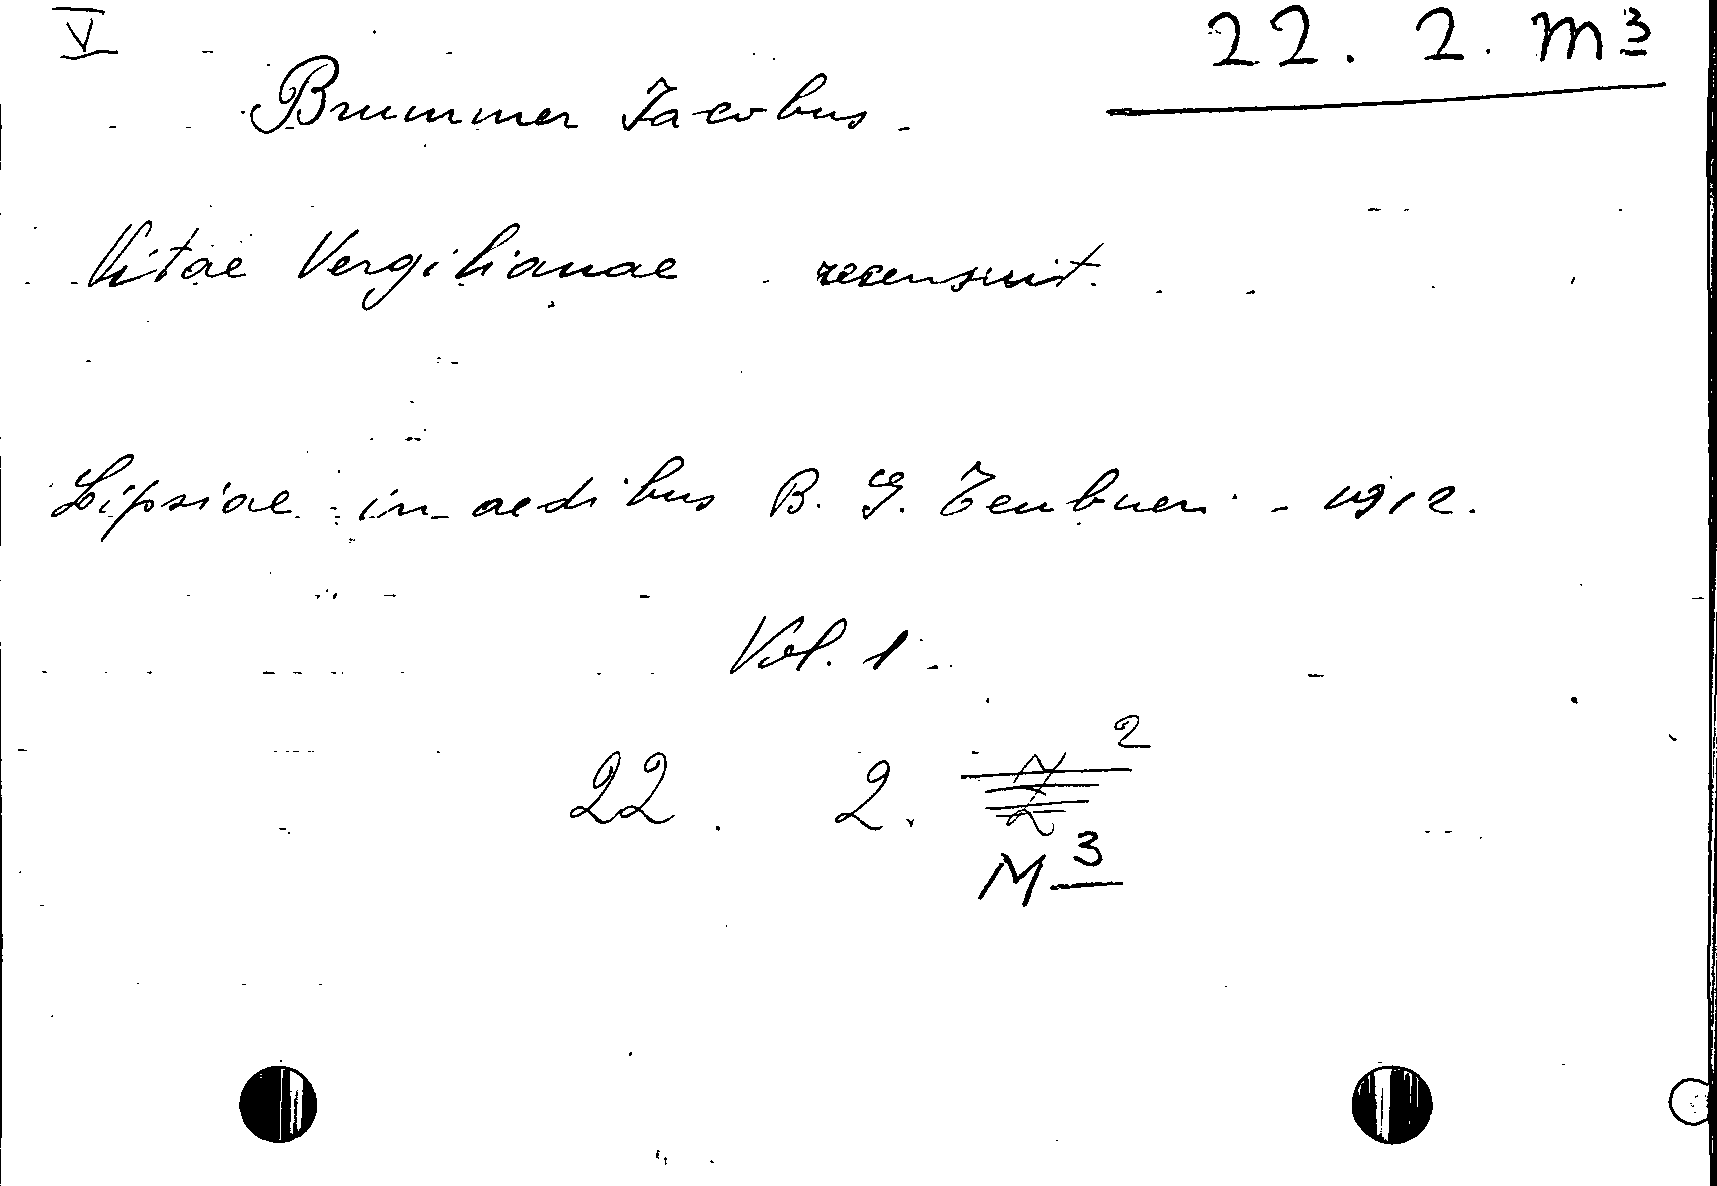 V
22. 2. M³
Brummer Jacobus.
Vitae Vergilianae recensuit.
Lipsiae in aedibus B. G. Teubneri - 1912.
Vol. 1.
22. 2. 2
M³